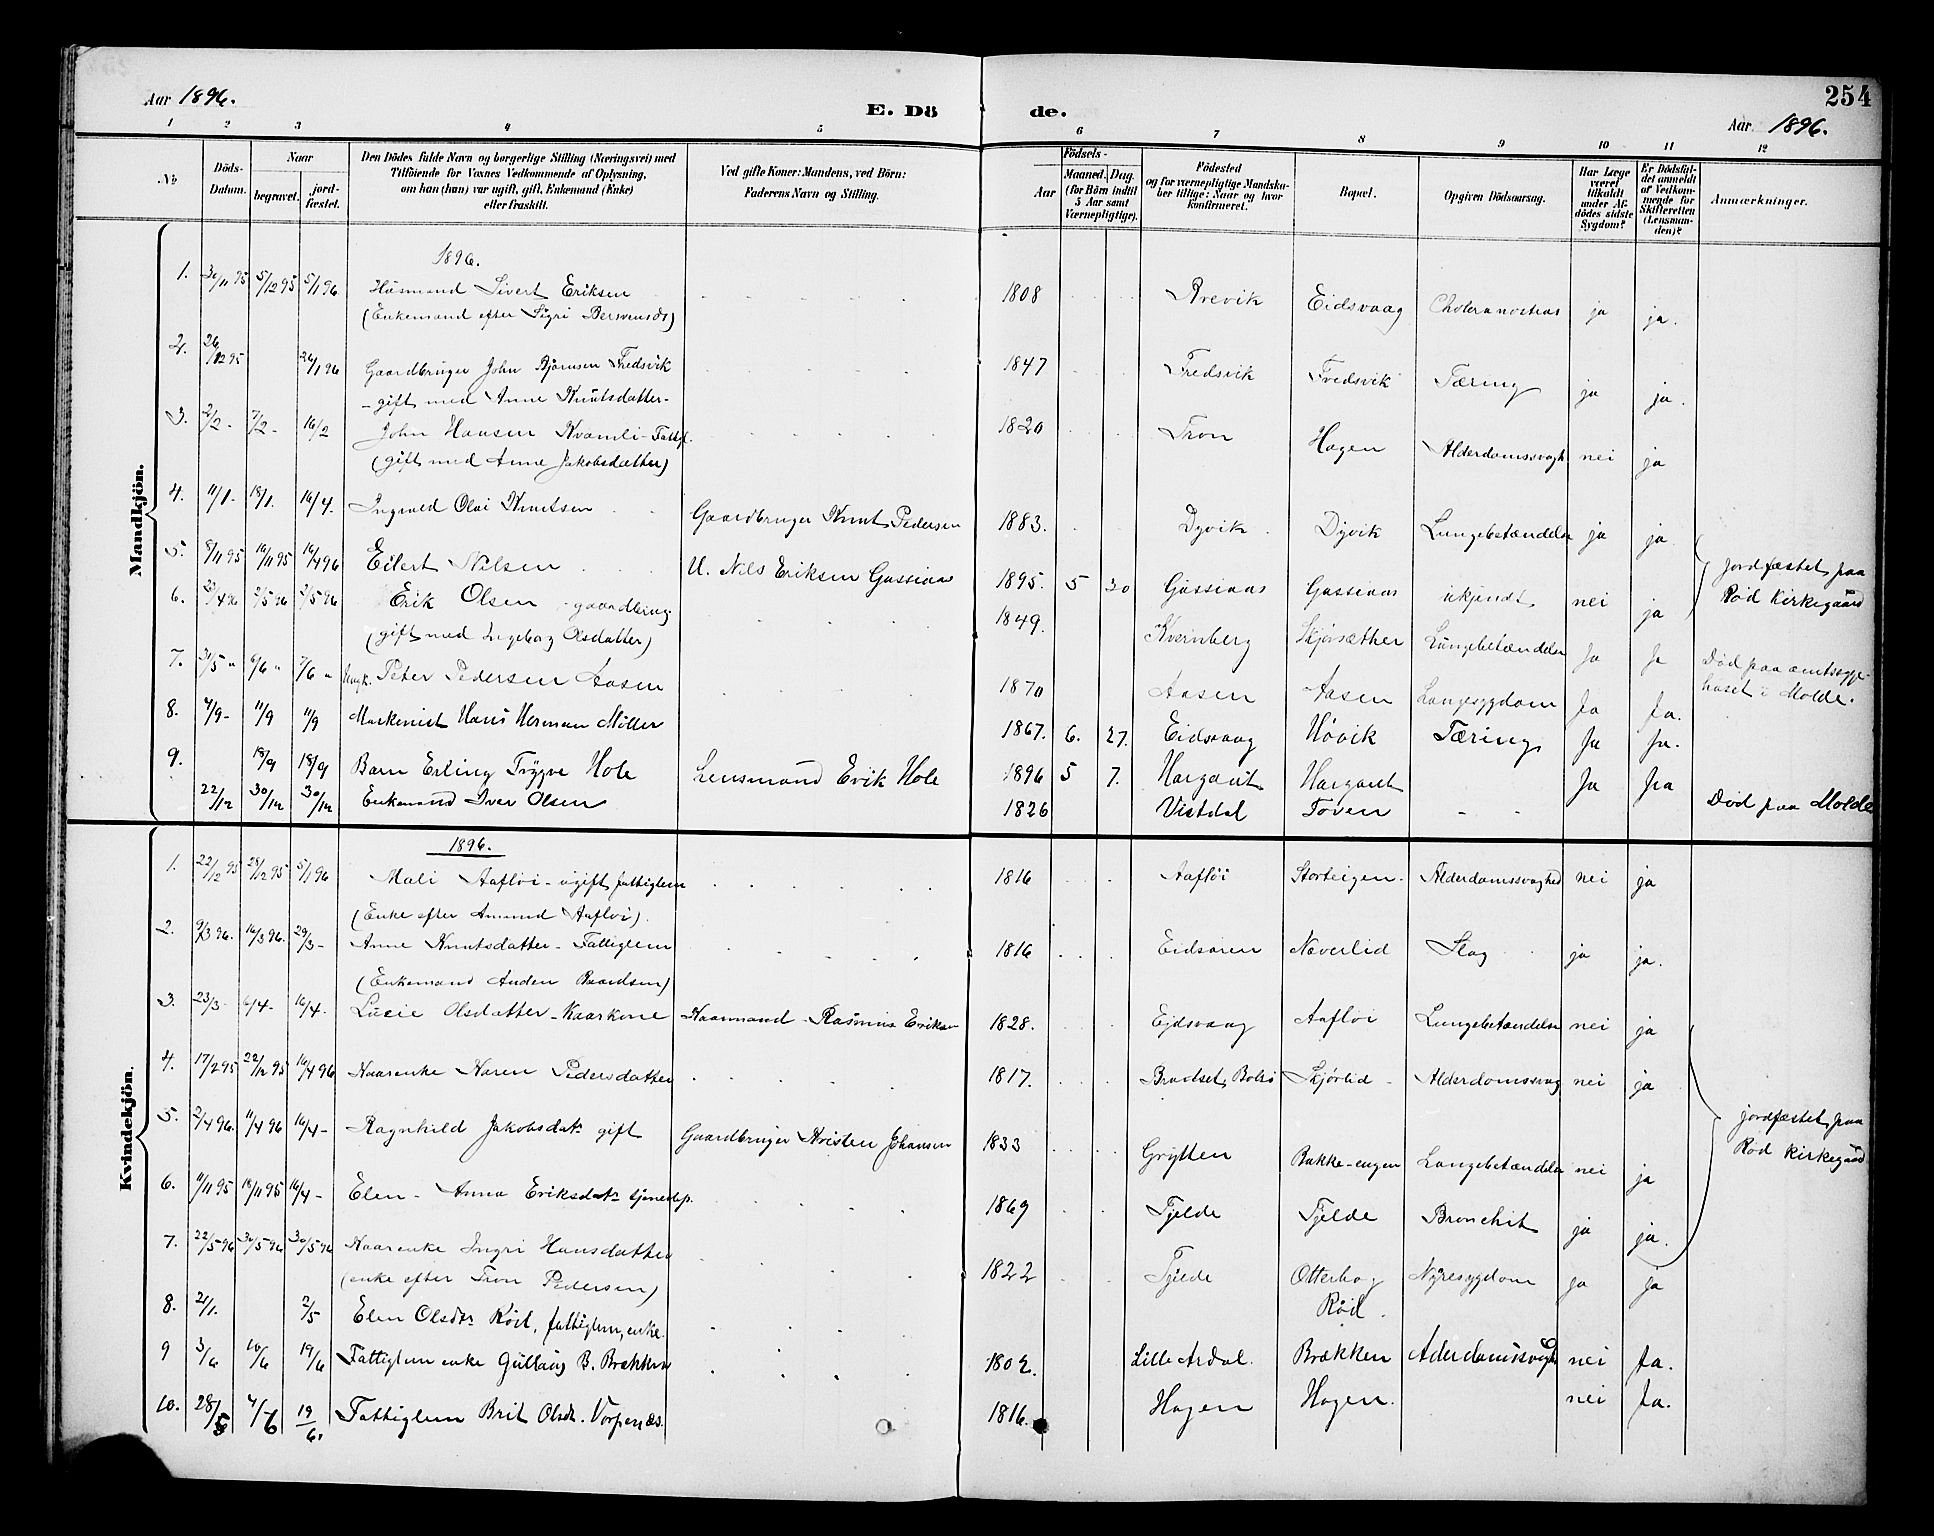 Aar 1896.
E. Dö de.
254
Aar 1896.
1 2 3 4 5 6 7 8 9 10 11 12
№
Döds-Datum.
Naar
begravet.
jord-fæstet.
Den Dödes fulde Navn og borgerlige Stilling (Næringsvei) med
Tilföiende for Voxnes Vedkommende af Oplysning,
om han (hun) var ugift, gift, Enkemand (Enke)
eller fraskilt.
Ved gifte Koner: Mandens, ved Börn:
Faderens Navn og Stilling.
Födsels-
Aar
Maaned. Dag.
(for Börn indtil
5 Aar samt
Værnepligtige).
Födested
og for værnepligtige Mandska-
ber tillige: Naar og hvor
konfirmeret.
Bopæl.
Opgiven Dödsaarsag.
Har Læge
været
tilkaldt
under Af-
dödes sidste
Sygdom?
Er Dödsfal-
det anmeldt
af Vedkom-
mende for
Skifteretten
(Lensman-
den)?
Anmærkninger.
Mandkjön.
1896.
1. 30/11 95 5/12 95 5/1 96 Husmand Sivert Eriksen 1808 Eidsvaag ja ja.
(Enkemand efter Sigri
2. 26/12 95 26/1 96 Gaardbruger John Bjørnsen Fredsvik 1847 Fredsvik Fredsvik Tæring ja ja.
- gift med Anne Knutsdatter -
3. 2/2 - 7/2 - 16/2 John Hansen Kvamli - 1820 Tron Hagen Alderdomssvagh nei ja
(gift med Anne Jakobsdatter)
4. 11/1 - 18/1. 16/4. Ingvald Olai Knutsen Gaardbruger Knut Pedersen 1883. Dyvik Dyvik Lungebetændelse ja ja
5. 8/11 95 16/11 95 16/4 96 Eilert Nilsen U. Nils Eriksen Gussiaas 1895. 5 30 Gussiaas Gussiaas ukjendt nei ja jordfæstet paa
Rød Kirkegaard
6. 23/4 96 2/5 96 2/5 96 Erik Olsen - gaardbrug 1849. Kvernberg Skjørsæther Lungebetændelse Ja Ja
(gift med Ingeborg Olsdatter)
7. 31/5 " 6/6 " 7/6 " Ungk. Peter Pedersen Aasen 1870 Aasen Aasen Lungesygdom Ja Ja. Død paa amtssyge-
huset i Molde.
8. 4/9 - 11/9 11/9 Maskenist Hans Herman Möller 1867. 6. 27. Eidsvaag Høvik Tæring Ja Ja.
9. 18/9 18/9 Barn Erling Trygve Hole Lensmand Erik Hole 1896 5 7. Hargaut Hargaut Ja Ja
22/12 30/12 30/12 Enkemand Iver Olsen 1826 Vistdal Toven - - Død paa Molde
Kvindekjön.
1896.
1. 22/12 95 28/12 95 5/1 96 Mali Aafløi - ugift fattiglem 1816 Aafløi Storteigen Alderdomssvaghed nei ja
(Enke efter Amund Aafløi).
2. 9/3 96. 16/3 96. 29/3 - Anne Knutsdatter - Fattiglem 1816 Eidsøren Næverlid Slag ja ja.
(Enkemand Anden Baardsen)
3. 23/3 - 6/4 - 16/4. Lucie Olsdatter - Kaarkone Kaarmand - Rasmus Eriksen 1828. Ejdsvaag Aafløi Lungebetændelse nei ja
4. 17/2 95 22/12 95 16/4 96 Kaarenke Karen Pedersdatter 1817. Bradset, Bolsø Skjørlid - Alderdomssvag nei ja
5. 2/4 96. 11/4 96 16/4 - Ragnhild Jakobsdatr gift Gaardbruger Kristen Johansen 1833 Grytten Bakke-engen Lungebetændelse nei ja jordfæstet paa
Rød Kirkegaard
6. 11/11 95 18/11 95 16/4 - Elen - Anna Eriksdatr tjenestp. 1869 Tjelde Tjelde Bronchit ja ja.
7. 22/5 96 30/5 96 30/5 96 Kaarenke Ingri Hansdatter 1822 Tjelde Otterhog Nyresygdom ja ja
(enke efter Tron Pedersen)
8. 21/1. 2/5 Elen Olsdtr Rød, fattiglem, enke. Rød.
9 3/6 10/6 19/6 Fattiglem enke B. Brækken 1802. Lille Ardal. Brækken Aderdomssvagh nei Ja.
10. 28/5 4/6 19/6. Fattiglem Brit Olsdt. Vorpenæs. 1816. Hagen Hagen. nei Ja.